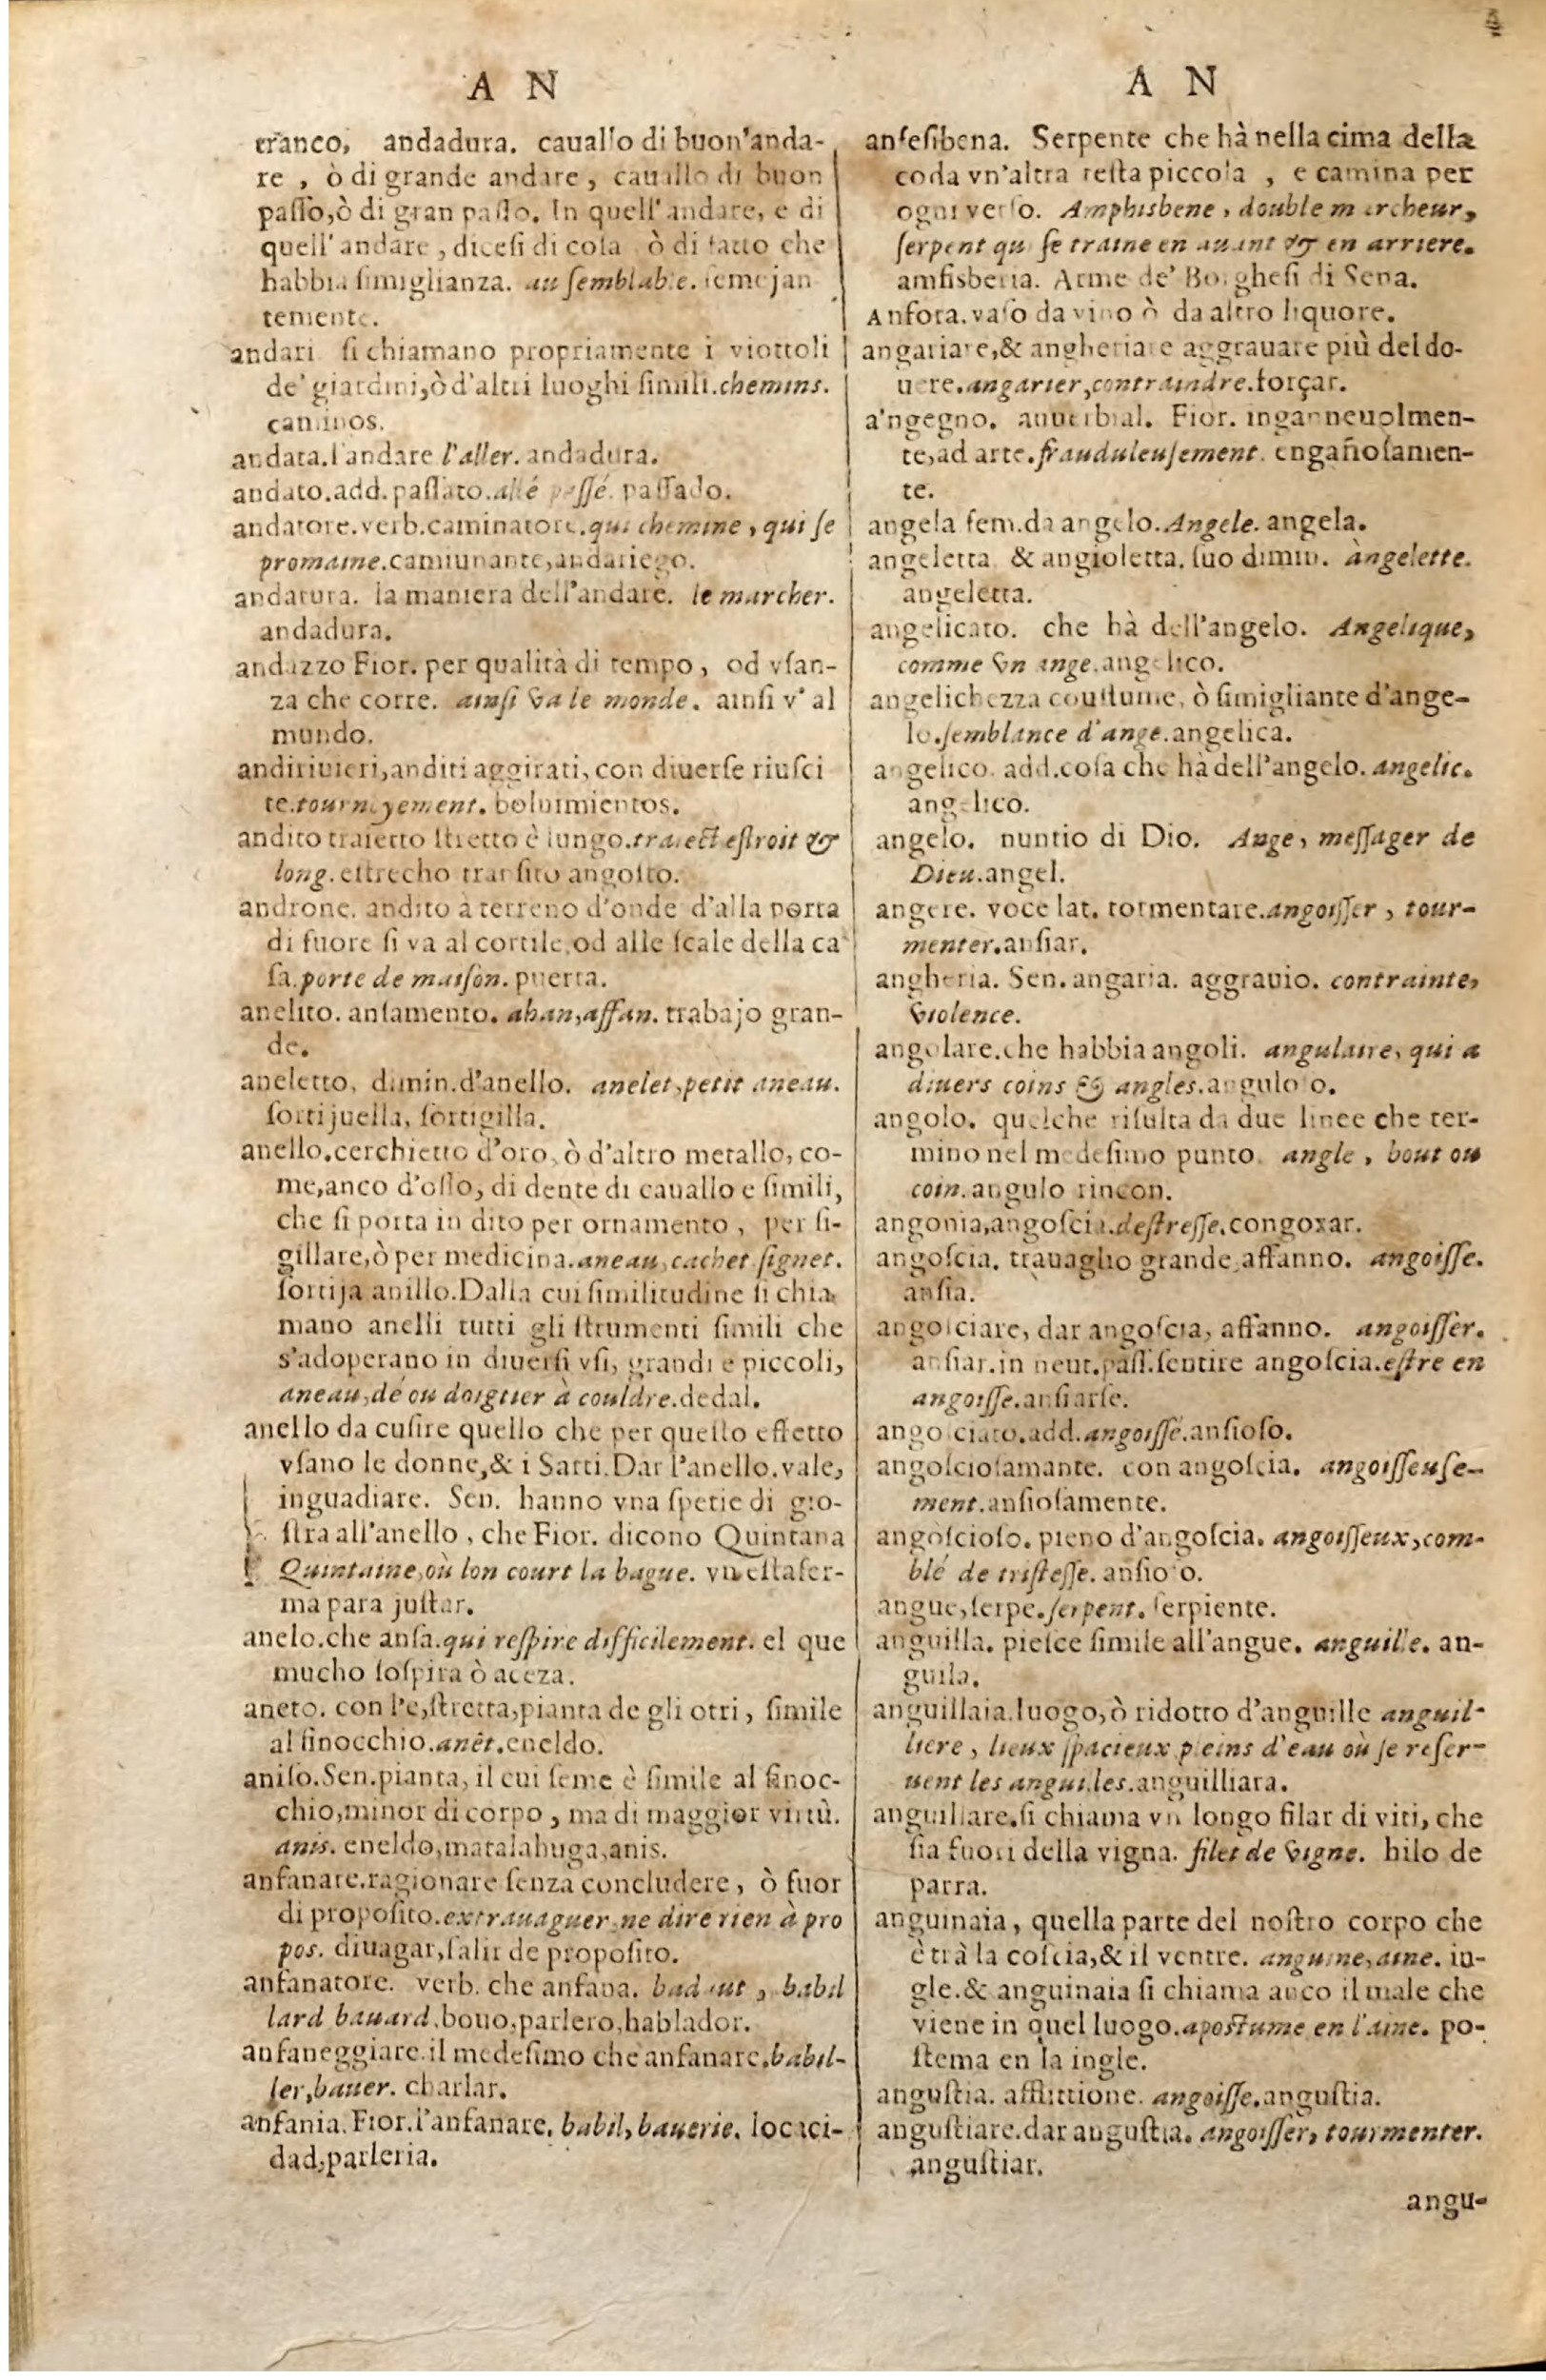 A N
tranco, andadura. cauallo di buon'anda-
re , ò di grande andare , cauallo di buon
paſſo,ò di gran paſſo. In quell'andare, e di
quell'andare , diceſi di coſa ò di fatto che
habbia ſimiglianza. au ſemblable. ſemejan
temente.
andari ſi chiamano propriamente i viottoli
de' giardini,ò d'altri luoghi ſimili.chemins.
caminos.
andata.l'andare l'aller. andadura.
andato.add.paſſato.allé paſſé. paſſado.
andatore.verb.caminatore.qui chemine , qui ſe
promaine.camiunante,andariego.
andatura. la maniera dell'andare. le marcher.
andadura.
andazzo Fior. per qualità di tempo , od vſan-
za che corre. ainſi va le monde. ainſi v' al
mundo.
andiriuieri,anditi aggirati, con diuerſe riuſci
te.tournoyement. boluimientos.
andito traietto ſtretto è lungo.traiect eſtroit &
long. eſtrecho tranſito angoſto.
androne. andito à terreno d'onde d'alla porta
di fuore ſi va al cortile,od alle ſcale della ca
ſa.porte de maiſon. puerta.
anelito. anſamento. ahan,affan. trabajo gran-
de.
aneletto, dimin.d'anello. anelet,petit aneau.
ſortijuella, ſortigilla.
anello.cerchietto d'oro,ò d'altro metallo, co-
me,anco d'oſſo, di dente di cauallo e ſimili,
che ſi porta in dito per ornamento , per ſi-
gillare,ò per medicina.aneau,cachet ſignet.
ſortija anillo.Dalla cui ſimilitudine ſi chia
mano anelli tutti gli ſtrumenti ſimili che
s'adoperano in diuerſi vſi, grandi e piccoli,
aneau,dé ou doigtier à couldre.dedal.
anello da cuſire quello che per queſto effetto
vſano le donne,& i Sarti.Dar l'anello.vale,
inguadiare. Sen. hanno vna ſpetie di gio-
ſtra all'anello , che Fior. dicono Quintana
Quintaine,où lon court la bague. vn eſtafer-
ma para juſtar.
anelo.che anſa.qui reſpire difficilement. el que
mucho ſoſpira ò aceza.
aneto. con l'e,ſtretta,pianta de gli otri , ſimile
al finocchio.anèt.eneldo.
aniſo.Sen.pianta, il cui ſeme è ſimile al finoc-
chio,minor di corpo , ma di maggior virtù.
anis. eneldo,matalahuga,anis.
anfanare.ragionare ſenza concludere , ò fuor
di propoſito.extrauaguer,ne dire rien à pro
pos. diuagar,ſalir de propoſito.
anfanatore. verb. che anfana. badaut , babil
lard bauard.bouo,parlero,hablador.
anfaneggiare.il medeſimo che anfanare.babil-
ler,bauer. charlar.
anfania.Fior.l'anfanare. babil, bauerie. locaci-
dad,parleria.
A N
anfeſibena. Serpente che hà nella cima della
coda vn'altra teſta piccola , e camina per
ogni verſo. Amphisbene , double marcheur,
ſerpent qui ſe traine en auant & en arriere.
amfisberia. Arme de' Borgheſi di Sena.
Anfora.vaſo da vino ò da altro liquore.
angariare,& angheriare aggrauare più del do-
uere.angarier,contraindre.forçar.
a'ngegno. auuerbial. Fior. inganneuolmen-
te,ad arte.frauduleuſement. engañoſamen-
te.
angela fem.da angelo.Angele. angela.
angeletta & angioletta. ſuo dimin. àngelette.
angeletta.
angelicato. che hà dell'angelo. Angelique,
comme vn ange.angelico.
angelichezza couſtume, ò ſimigliante d'ange-
lo.ſemblance d'ange.angelica.
angelico. add.coſa che hà dell'angelo. angelic.
angelico.
angelo. nuntio di Dio. Ange, meſſager de
Dieu.angel.
angere. voce lat. tormentare.angoiſſer , tour-
menter.anſiar.
angheria. Sen. angaria. aggrauio. contrainte,
violence.
angolare.che habbia angoli. angulaire, qui a
diuers coins & angles.anguloſo.
angolo. quelche riſulta da due linee che ter-
mino nel medeſimo punto. angle , bout ou
coin.angulo rincon.
angonia,angoſcia.deſtreſſe.congoxar.
angoſcia. trauaglio grande,affanno. angoiſſe.
anſia.
angoſciare, dar angoſcia, affanno. angoiſſer.
anſiar.in neut.paſſ.ſentire angoſcia.eſtre en
angoiſſe.anſiarſe.
angoſciato.add.angoiſſé.anſioſo.
angoſcioſamante. con angoſcia. angoiſſeuſe-
ment.anſioſamente.
angoſcioſo. pieno d'angoſcia. angoiſſeux,com-
blé de triſteſſe. anſioſo.
angue,ſerpe.ſerpent. ſerpiente.
anguilla. pieſce ſimile all'angue. anguille. an-
guila.
anguillaia.luogo,ò ridotto d'anguille anguil-
liere , lieux ſpacieux pleins d'eau où ſe reſer-
uent les anguilles.anguilliara.
anguillare.ſi chiama vn longo filar di viti, che
ſia fuori della vigna. filet de vigne. hilo de
parra.
anguinaia , quella parte del noſtro corpo che
è trà la coſcia,& il ventre. anguine,aine. in-
gle.& anguinaia ſi chiama anco il male che
viene in quel luogo.apoſtume en l'aine. po-
ſtema en la ingle.
anguſtia. afflittione. angoiſſe.anguſtia.
anguſtiare.dar anguſtia. angoiſſer, tourmenter.
anguſtiar.
angu-